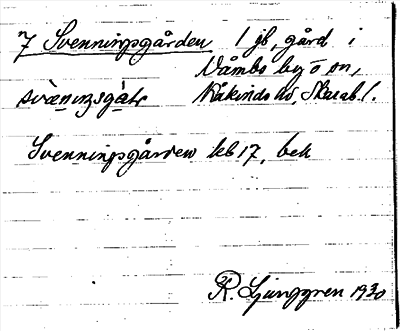 7 Svenningsgården 1 jb, gård i
Våmbs by o on,
svæningsgår Kåkinds hd, Skarab. l.
Svenningsgården kb 17, bek
R. Ljunggren 1930